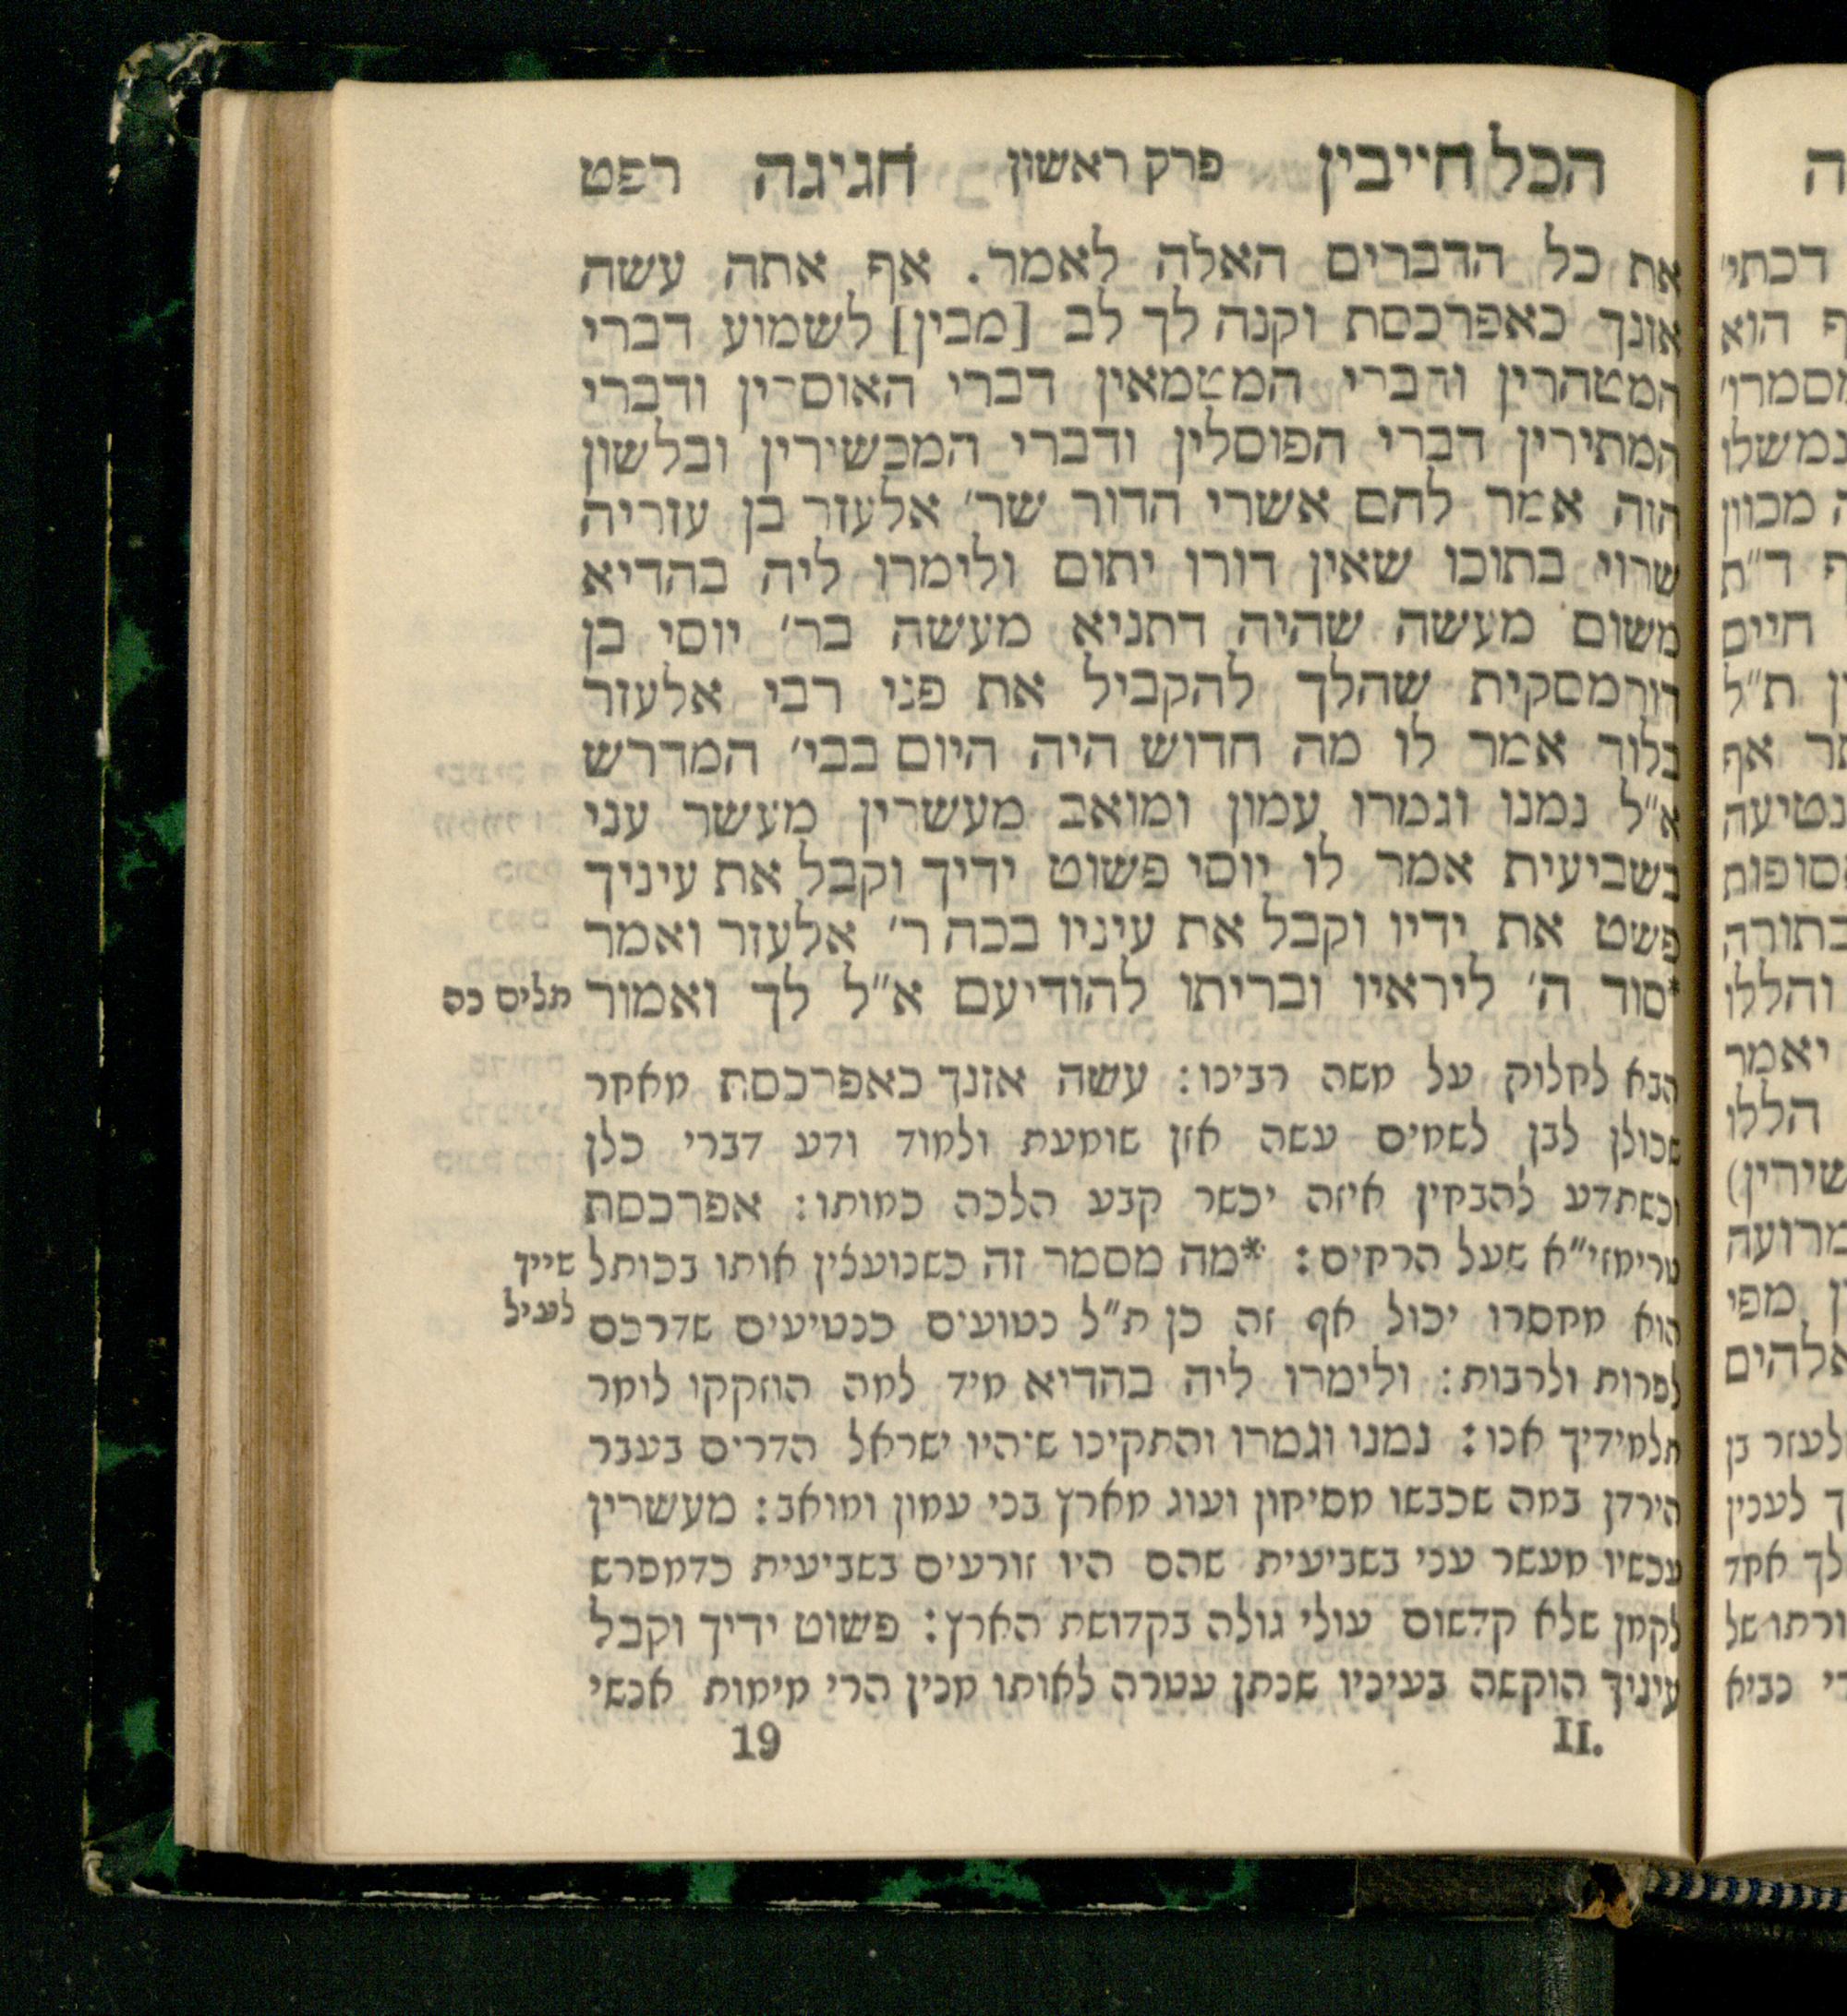 הכל חייבין פרק ראשון חגיגה רפט
את כל הדברים האלה לאמר. אף אתה עשה
אזנך כאפרכסת וקנה לך לב [מבין] לשמוע דברי
המטהרין ודברי המטמאין דברי האוסרין ודברי
המתירין דברי הפוסלין ודברי המכשירין ובלשון
הזה אמר להם אשרי הדור שר׳ אלעזר בן עזריה
שרוי בתוכו שאין דורו יתום ולימרו ליה בהדיא
משום מעשה שהיה דתניא מעשה בר׳ יוסי בן
דורמסקית שהלך להקביל את פני רבי אלעזר
בלוד אמר לו מה חדוש היה היום בבי׳ המדרש
א״ל נמנו וגמרו עמון ומואב מעשרין מעשר עני
בשביעית אמר לו יוסי פשוט ידיך וקבל את עיניך
פשט את ידיו וקבל את עיניו בכה ר׳ אלעזר ואמר
*סוד ה׳ ליראיו ובריתו להודיעם א״ל לך ואמור
תלים כה
הבא לחלוק על משה רבינו: עשה אזנך כאפרכסת מאחר
שכולן לבן לשמים עשה אזן שומעת ולמוד ודע דברי כלן
וכשתדע להבחין איזה יכשר קבע הלכה כמותו: אפרכסת
טרימזי״א שעל הרחים: *מה מסמר זה כשנועצין אותו בכותל
שייך
הוא מחסרו יכול אף זה כן ת״ל נטועים כנטיעים שדרכם
לעיל
לפרות ולרבות: ולימרו ליה בהדיא מיד למה הוזקקו לומר
תלמידיך אנו: נמנו וגמרו והתקינו שיהיו ישראל הדרים בעבר
הירדן במה שכבשו מסיחון ועוג מארץ בני עמון ומואב: מעשרין
עכשיו מעשר עני בשביעית שהם היו זורעים בשביעית כדמפרש
לקמן שלא קדשום עולי גולה בקדושת הארץ: פשוט ידיך וקבל
עיניך הוקשה בעיניו שנתן עטרה לאותו מנין הרי מימות אנשי
II. 19
דכתי׳
הוא
מכוון
ד״ת
חיים
ת״ל
אף
נטיעה
אסופות
בתורה
והללו
יאמר
הללו
מפי
אלהים
לעזר בן
לענין
לך אחד
נביא